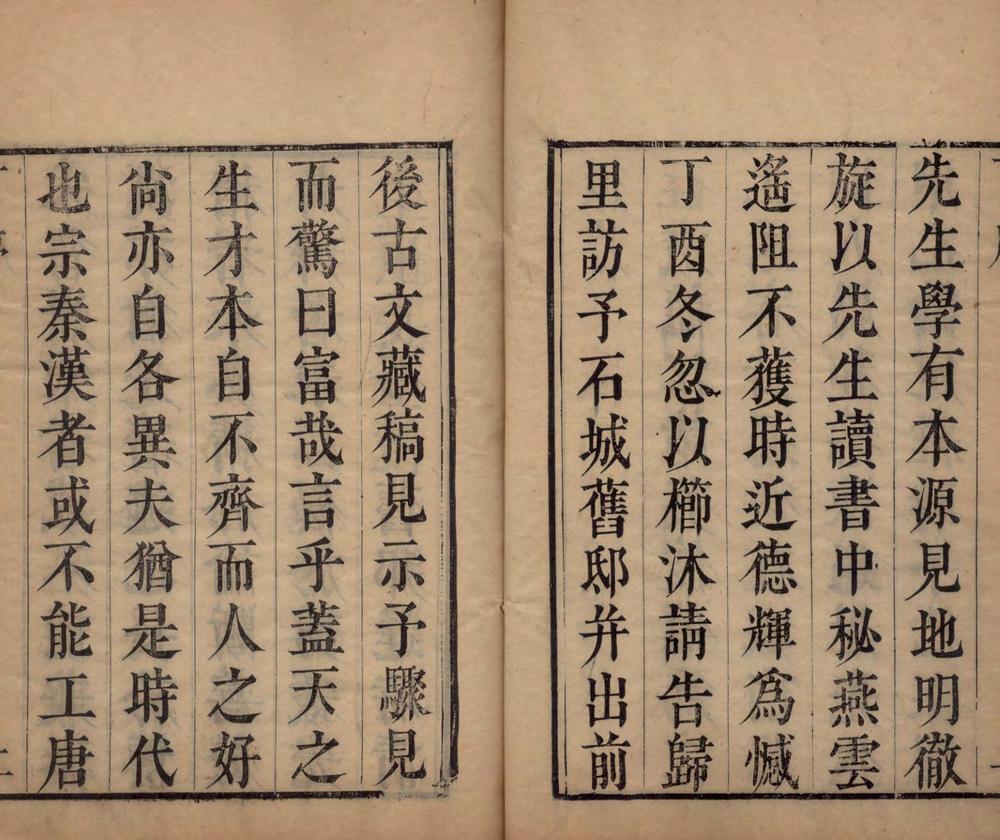 先生學有本源見地明徹
旋以先生讀書中秘燕雲
遙阻不獲時近德輝爲憾
丁酉冬忽以櫛沐請告歸
里訪予石城舊邸并出前
後古文藏稿見示予驟見
而驚曰富哉言乎蓋天之
生才本自不齊而人之好
尙亦自各異夫猶是時代
也宗秦漢者或不能工唐